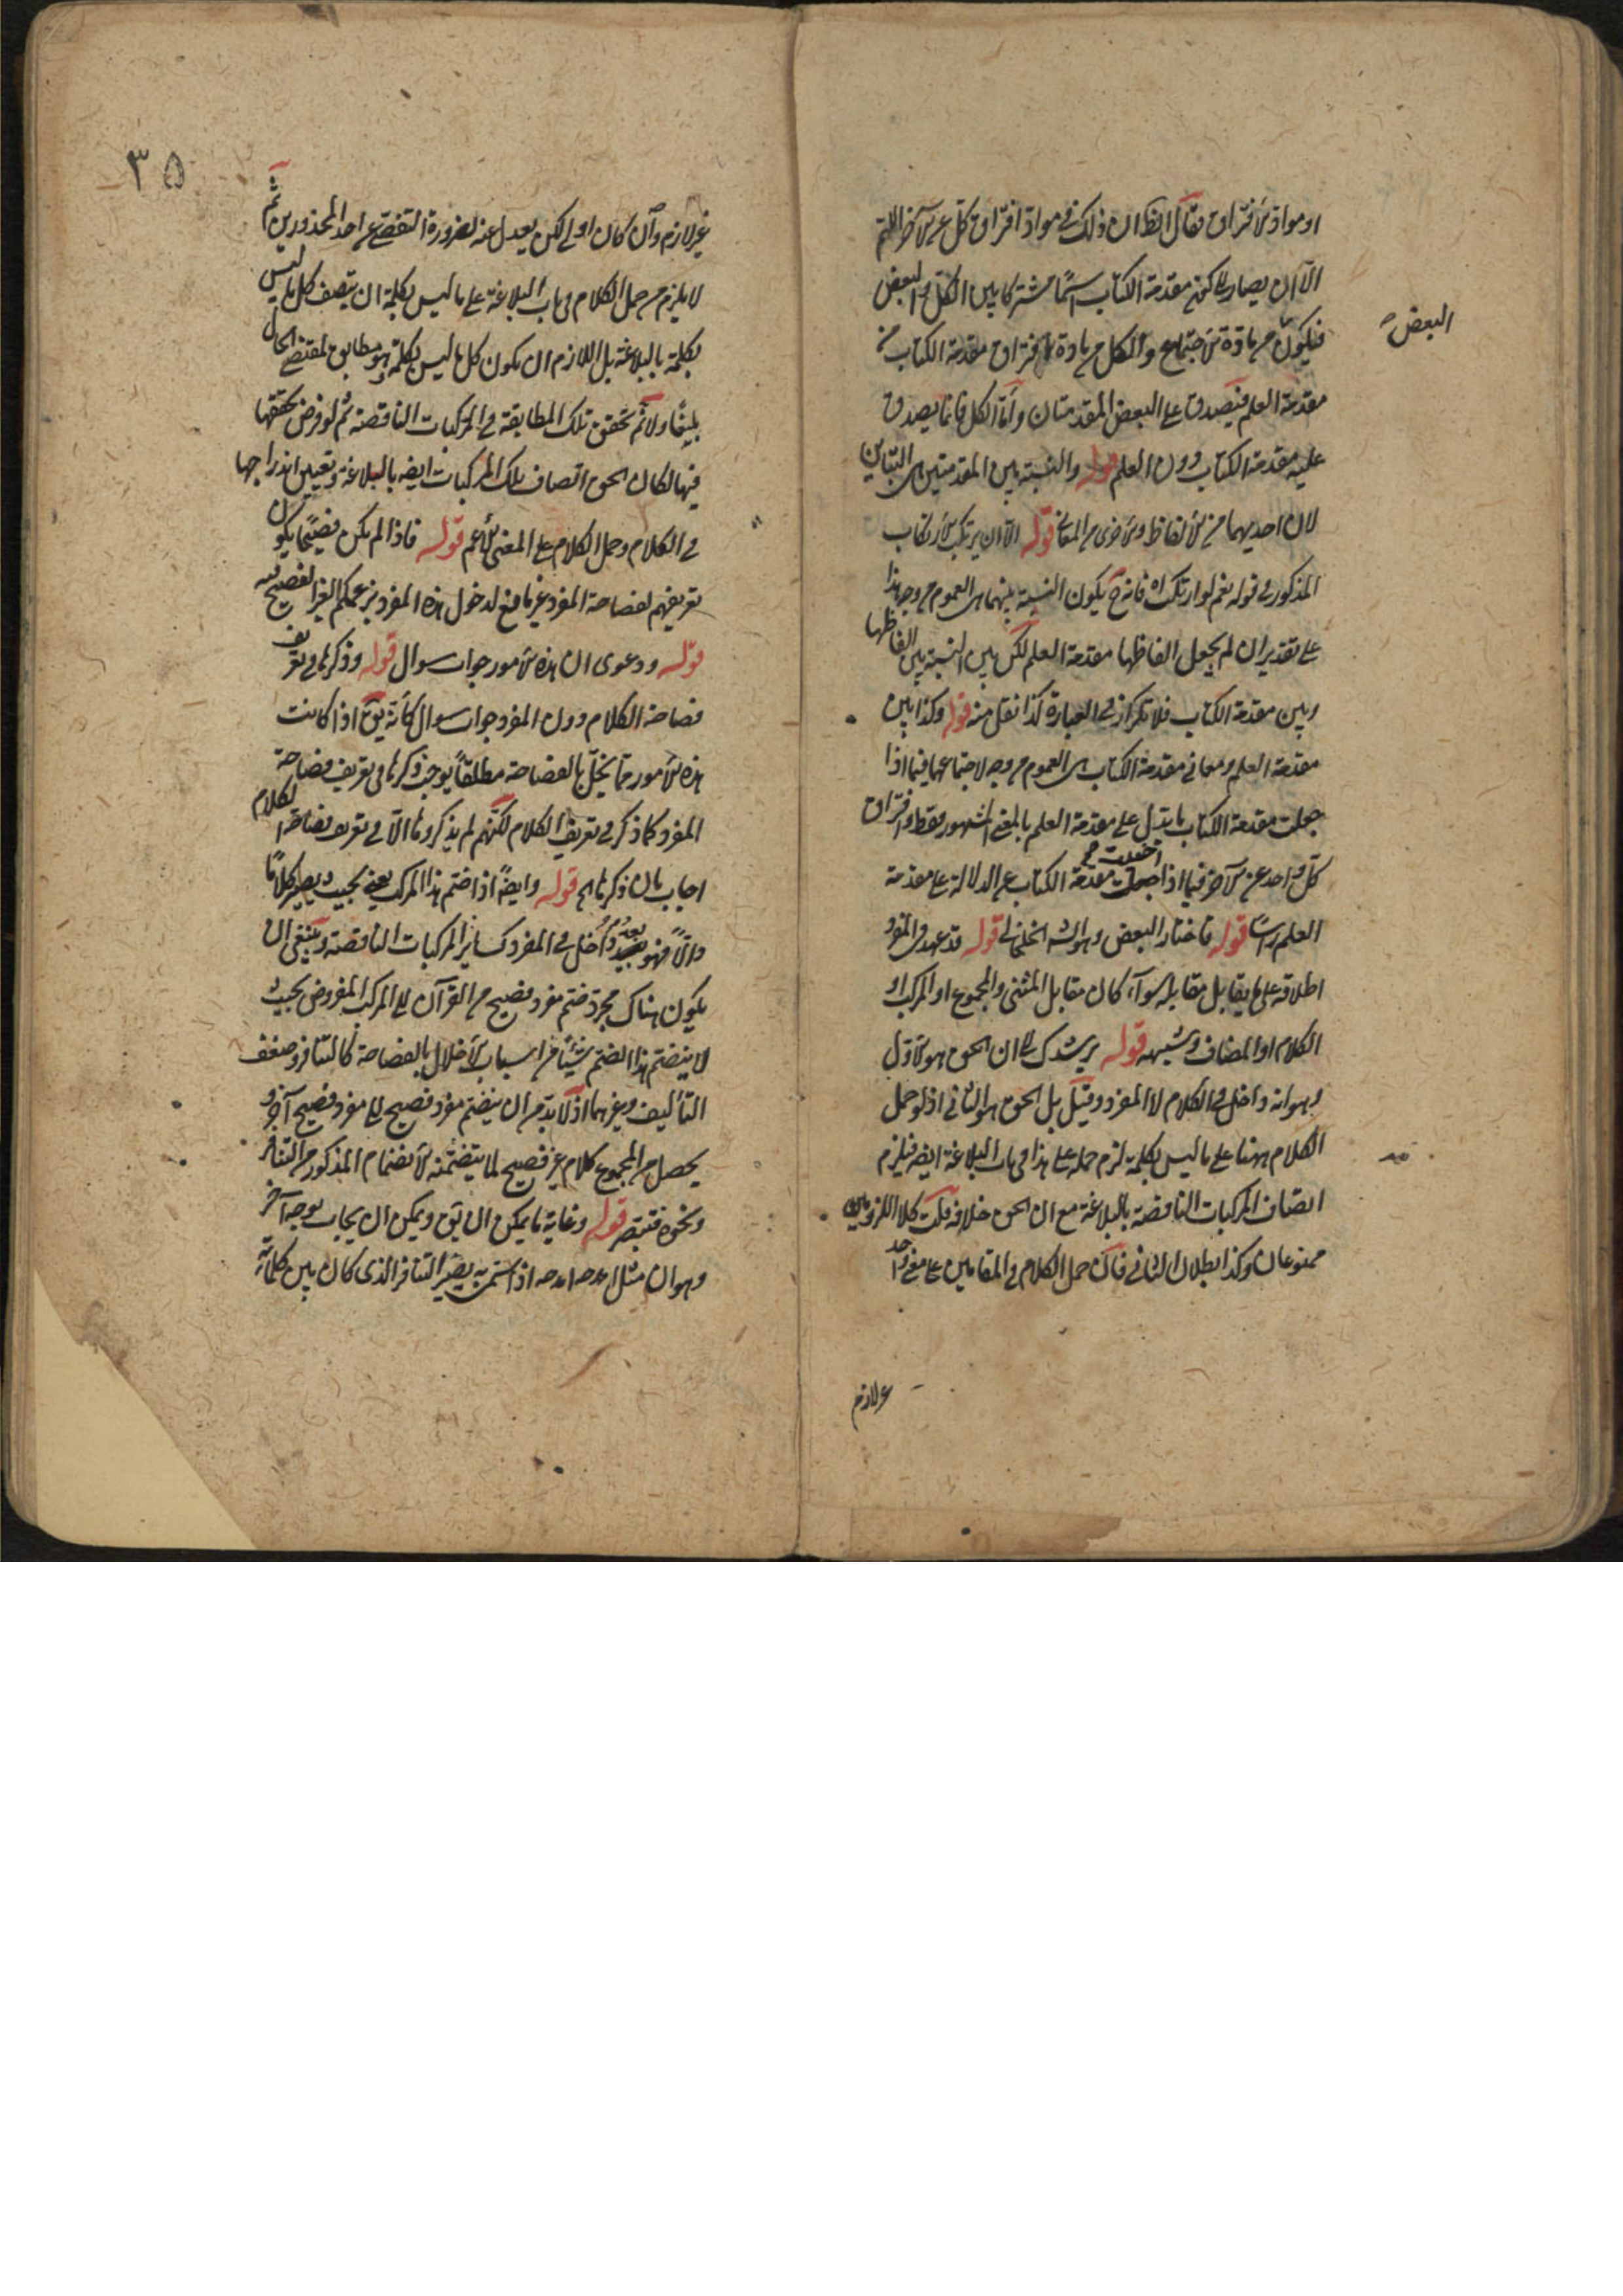 او مواد الافتراق فقال الظ ان ذلك في مواد افتراق كل عن الآخر اللهم
الا ان يصار الى كون مقدمة الكتاب اسمًا مشتركا بين الكل والبعض
البعض
فيكون من مادة الاجتماع والكل من مادة افتراق مقدمة الكتاب من
مقدمة العلم فتصدق على البعض المقدمتان واما الكل فانما يصدق
عليه مقدمة الكتاب دون العلم قوله والنسبة بين المقدمتين هي التباين
لان احديهما من الالفاظ والاخرى من المعاني قوله الا ان يرتكب الارتكاب
المذكور في قوله نعم لو ارتكب اه فانه ح يكون النسبة بينهما هي العموم من وجه هذا
على تقدير ان لم يجعل الفاظها مقدمة العلم لكن بين النسبة بين الفاظها
وبين مقدمة الكتاب فلا تكرار في العبارة كذا نقل منه قوله وكذا بين
مقدمة العلم ومعاني مقدمة الكتاب هي العموم من وجه لاجتماعهما فيما اذا
جعلت مقدمة الكتاب ما تدل على مقدمة العلم بالمعنى المشهور فقط وافتراق
كل واحد عن الآخر فيما اذا جعلت مقدمة الكتاب عن الدلالة على مقدمة
العلم راسًا قوله فاختار البعض وهو الش الخلخالي قوله قد عهد في المفرد
اطلاقه على ما يقابل مقابله سوآء كان مقابل المثنى والمجموع او المركب او
الكلام او المضاف وشبهه قوله يرشدك الى ان الحق هو الاول
وهو انه داخل في الكلام لا المفرد وقيل بل الحق هو الثاني اذ لو حمل
الكلام ههنا على ما ليس بكلمة لزم حمله على هذا في باب البلاغة ايضا فيلزم
اتصاف المركبات الناقصة بالبلاغة مع ان الحق خلافه قلت كلا اللزومين
ممنوعان وكذا بطلان الثاني فان حمل الكلام في المقامين على معنى واحد
غير لازم
٣٥
غير لازم وان كان اولى لكن يعدل عنه لضرورة التفصي عن احد المحذورين ثم
لا يلزم من حمل الكلام في باب البلاغة على ما ليس بكلمة ان يتصف كل ما ليس
بكلمة بالبلاغة بل اللازم ان يكون كل ما ليس بكلمة وهو مطابق لمقتضى الحال
بليغًا ولا ثم تحقق تلك المطابقة في المركبات الناقصة ثم لو فرض تحققها
فيها لكان الحق اتصاف تلك المركبات ايضا بالبلاغة وتعين اندراجها
في الكلام وحمل الكلام على المعنى الاعم قوله فاذا لم يكن فصيحًا يكون
تعريفهم لفصاحة المفرد غير مانع لدخول هذه المفرد بزعمكم الغير الفصيح فيه
قوله ودعوى ان هذه الامور جواب سوال قوله وذكرها في تعريف
فصاحة الكلام دون المفرد جواب سوال كانه يق اذا كانت
هذه الامور مما يخل بالفصاحة مطلقًا يوجب ذكرها في تعريف فصاحة
المفرد كما ذكر في تعريف الكلام لكنهم لم يذكروها الا في تعريف فصاحة الكلام
اجاب بان ذكرها الخ قوله وايضا اذا ضم هذا المركب يعني بحيث يصير كلامًا
والا فهو بعد داخل في المفرد كسائر المركبات الناقصة وينبغي ان
يكون هناك مجرد ضم مفرد فصيح من القرآن الى المركب المفروض بحيث
لا يتضمن هذا الضم شيئًا من اسباب الاخلال بالفصاحة كالتنافر وضعف
التأليف وغيرهما اذ لا بد من ان ينضم مفرد فصيح الى مفرد فصيح آخر و
يحصل من المجموع كلام غير فصيح لما يتضمنه الانضمام المذكور من التنافر
ونحوه فتبصر قوله وغاية ما يمكن ان يق ويمكن ان يجاب بوجه آخر
وهو ان مثل امدحه امدحه اذا سمي به يصير التنافر الذي كان بين كلماته